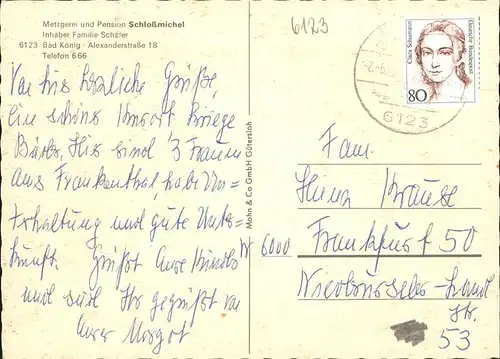 Metzgerei und Pension Schloßmichel
Inhaber Familie Schäfer
6123 Bad König · Alexanderstraße 18
Telefon 666
6123
Clara Schumann
Deutsche Bundespost
80
6123
Von hier herzliche Grüße,
ein schöner Kurort
Hier sind 3 Frauen
aus Frankenthal, habe Un=
terhaltung und gute Unter
kunft. Grüßt Eure Kinder
und seid Ihr gegrüßt von
Eurer Margot
Mohn & Co GmbH Gütersloh
Fam.
Krause
W 6000 Frankfurt 50
Niederurseler-Land
str.
53